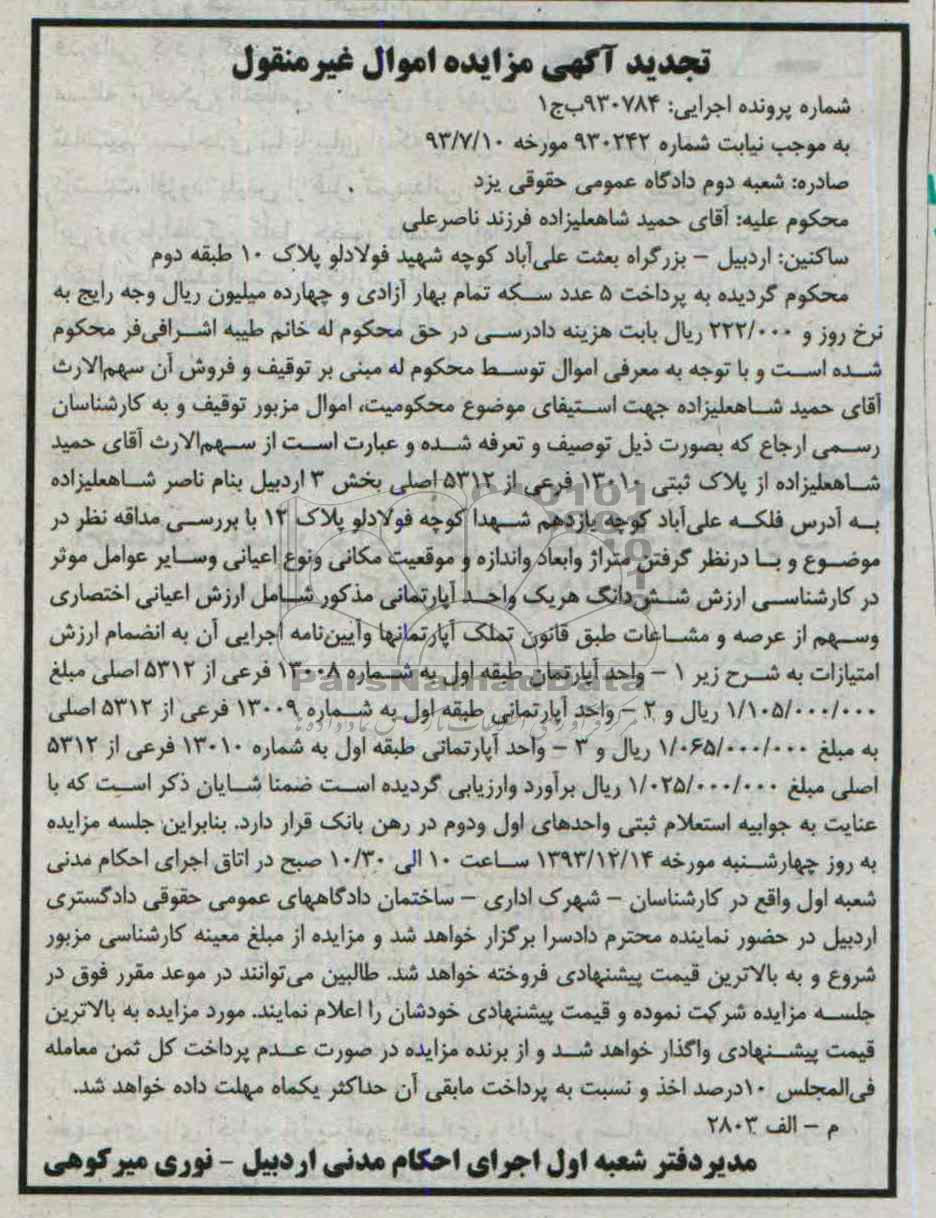 تجدید آگهی مزایده اموال غیرمنقول
شماره پرونده اجرایی: ۹۳۰۷۸۴ب‌ج۱
به موجب نیابت شماره ۹۳۰۲۴۲ مورخه ۹۳/۷/۱۰
صادره: شعبه دوم دادگاه عمومی حقوقی یزد
محکوم علیه: آقای حمید شاهعلیزاده فرزند ناصرعلی
ساکنین: اردبیل – بزرگراه بعثت علی‌آباد کوچه شهید فولادلو پلاک ۱۰ طبقه دوم
محکوم گردیده به پرداخت ۵ عدد سکه تمام بهار آزادی و چهارده میلیون ریال وجه رایج به
نرخ روز و ۲۲۲/۰۰۰ ریال بابت هزینه دادرسی در حق محکوم له خانم طیبه اشرافی‌فر محکوم
شده است و با توجه به معرفی اموال توسط محکوم له مبنی بر توقیف و فروش آن سهم‌الارث
آقای حمید شاهعلیزاده جهت استیفای موضوع محکومیت، اموال مزبور توقیف و به کارشناسان
رسمی ارجاع که بصورت ذیل توصیف و تعرفه شده و عبارت است از سهم‌الارث آقای حمید
شاهعلیزاده از پلاک ثبتی ۱۳۰۱۰ فرعی از ۵۳۱۲ اصلی بخش ۳ اردبیل بنام ناصر شاهعلیزاده
به آدرس فلکه علی‌آباد کوچه یازدهم شهدا کوچه فولادلو پلاک ۱۲ با بررسی مداقه نظر در
موضوع و با درنظر گرفتن متراژ وابعاد واندازه و موقعیت مکانی ونوع اعیانی وسایر عوامل موثر
در کارشناسی ارزش شش‌دانگ هریک واحد آپارتمانی مذکور شامل ارزش اعیانی اختصاری
وسهم از عرصه و مشاعات طبق قانون تملک آپارتمانها وآیین‌نامه اجرایی آن به انضمام ارزش
امتیازات به شرح زیر ۱ – واحد آپارتمان طبقه اول به شماره ۱۳۰۰۸ فرعی از ۵۳۱۲ اصلی مبلغ
۱/۱۰۵/۰۰۰/۰۰۰ ریال و ۲ – واحد آپارتمانی طبقه اول به شماره ۱۳۰۰۹ فرعی از ۵۳۱۲ اصلی
به مبلغ ۱/۰۶۵/۰۰۰/۰۰۰ ریال و ۳ – واحد آپارتمانی طبقه اول به شماره ۱۳۰۱۰ فرعی از ۵۳۱۲
اصلی مبلغ ۱/۰۲۵/۰۰۰/۰۰۰ ریال برآورد وارزیابی گردیده است ضمنا شایان ذکر است که با
عنایت به جوابیه استعلام ثبتی واحدهای اول ودوم در رهن بانک قرار دارد. بنابراین جلسه مزایده
به روز چهارشنبه مورخه ۱۳۹۳/۱۲/۱۴ ساعت ۱۰ الی ۱۰/۳۰ صبح در اتاق اجرای احکام مدنی
شعبه اول واقع در کارشناسان – شهرک اداری – ساختمان دادگاههای عمومی حقوقی دادگستری
اردبیل در حضور نماینده محترم دادسرا برگزار خواهد شد و مزایده از مبلغ معینه کارشناسی مزبور
شروع و به بالاترین قیمت پیشنهادی فروخته خواهد شد. طالبین می‌توانند در موعد مقرر فوق در
جلسه مزایده شرکت نموده و قیمت پیشنهادی خودشان را اعلام نمایند. مورد مزایده به بالاترین
قیمت پیشنهادی واگذار خواهد شد و از برنده مزایده در صورت عدم پرداخت کل ثمن معامله
فی‌المجلس ۱۰درصد اخذ و نسبت به پرداخت مابقی آن حداکثر یکماه مهلت داده خواهد شد.
م – الف ۲۸۰۳
مدیردفتر شعبه اول اجرای احکام مدنی اردبیل – نوری میرکوهی
ParsNamadData